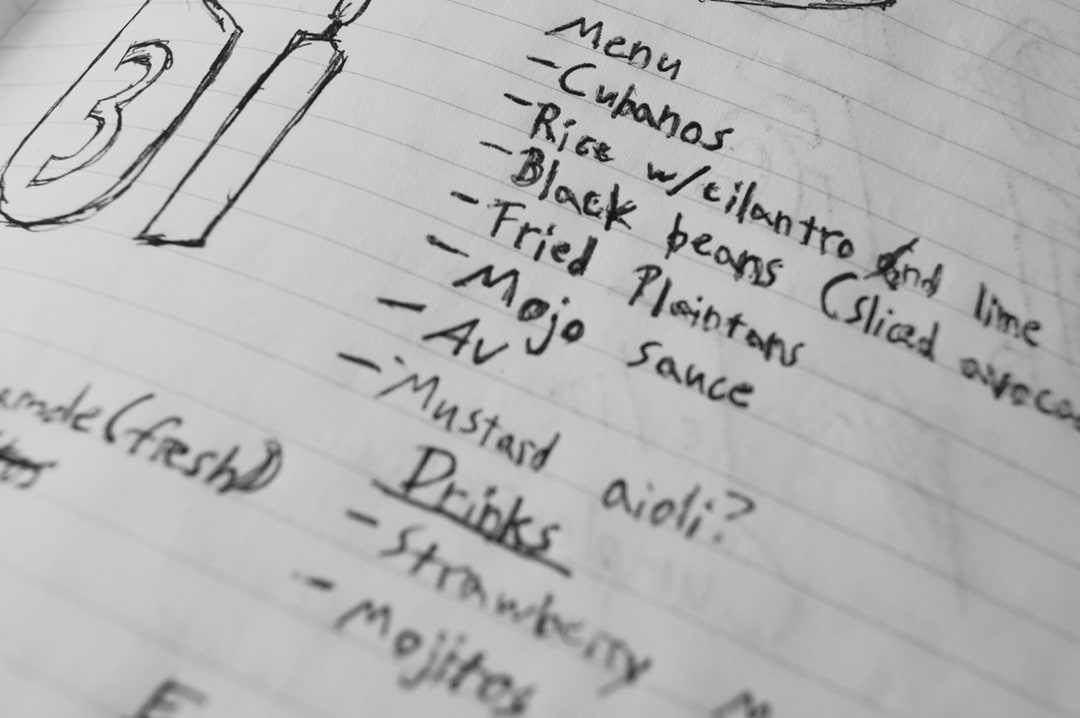 31
Menu
- Cubanos
- Rice w/cilantro and lime
- Black beans (sliced
- Fried Plaintans
- Mojo sauce
- Av
- Mustard aioli?
(fresh)
Drinks
- Strawberry
- Mojitos